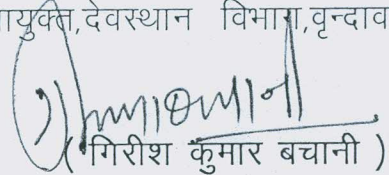 ायुक्त,देवस्थान विभाग,वृन्दाव
( गिरीश कुमार बचानी )